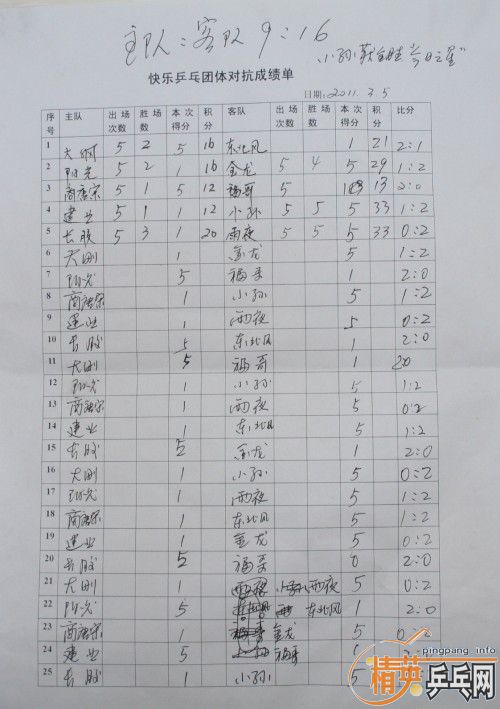 主队：客队 9：16
小孙获全胜"今日之星"
快乐乒乓团体对抗成绩单
日期：2011.3.5
序号 主队 出场次数 胜场次数 本次得分 积分 客队 出场次数 胜场次数 本次得分 积分 比分
1 大刚 5 2 5 16 东北风 1 21 2:1
2 阳光 5 2 1 16 金龙 5 4 5 29 1:2
3 商唐宋 5 1 5 12 福哥 5 13 2:0
4 建业 5 1 1 12 小孙 5 5 5 33 1:2
5 长胶 5 3 1 20 雨夜 5 5 5 33 0:2
6 大刚 1 金龙 5 1:2
7 阳光 5 福哥 1 2:0
8 商唐宋 1 小孙 5 1:2
9 建业 1 雨夜 5 0:2
10 长胶 5 东北风 1 2:0
11 大刚 5 福哥 1 20
12 阳光 1 小孙 5 1:2
13 商唐宋 1 雨夜 5 0:2
14 建业 1 东北风 5 1:2
15 长胶 5 金龙 1 2:0
16 大刚 1 小孙 5 0:2
17 阳光 1 雨夜 5 1:2
18 商唐宋 1 东北风 5 1:2
19 建业 1 金龙 5 0:2
20 长胶 5 福哥 0 2:0
21 大刚 1 雨夜 5 0:2
22 阳光 5 东北风 1 2:0
23 商唐宋 1 金龙 5 0:2
24 建业 5 福哥 1
25 长胶 1 小孙 5
pingpang.info
精英乒乓网